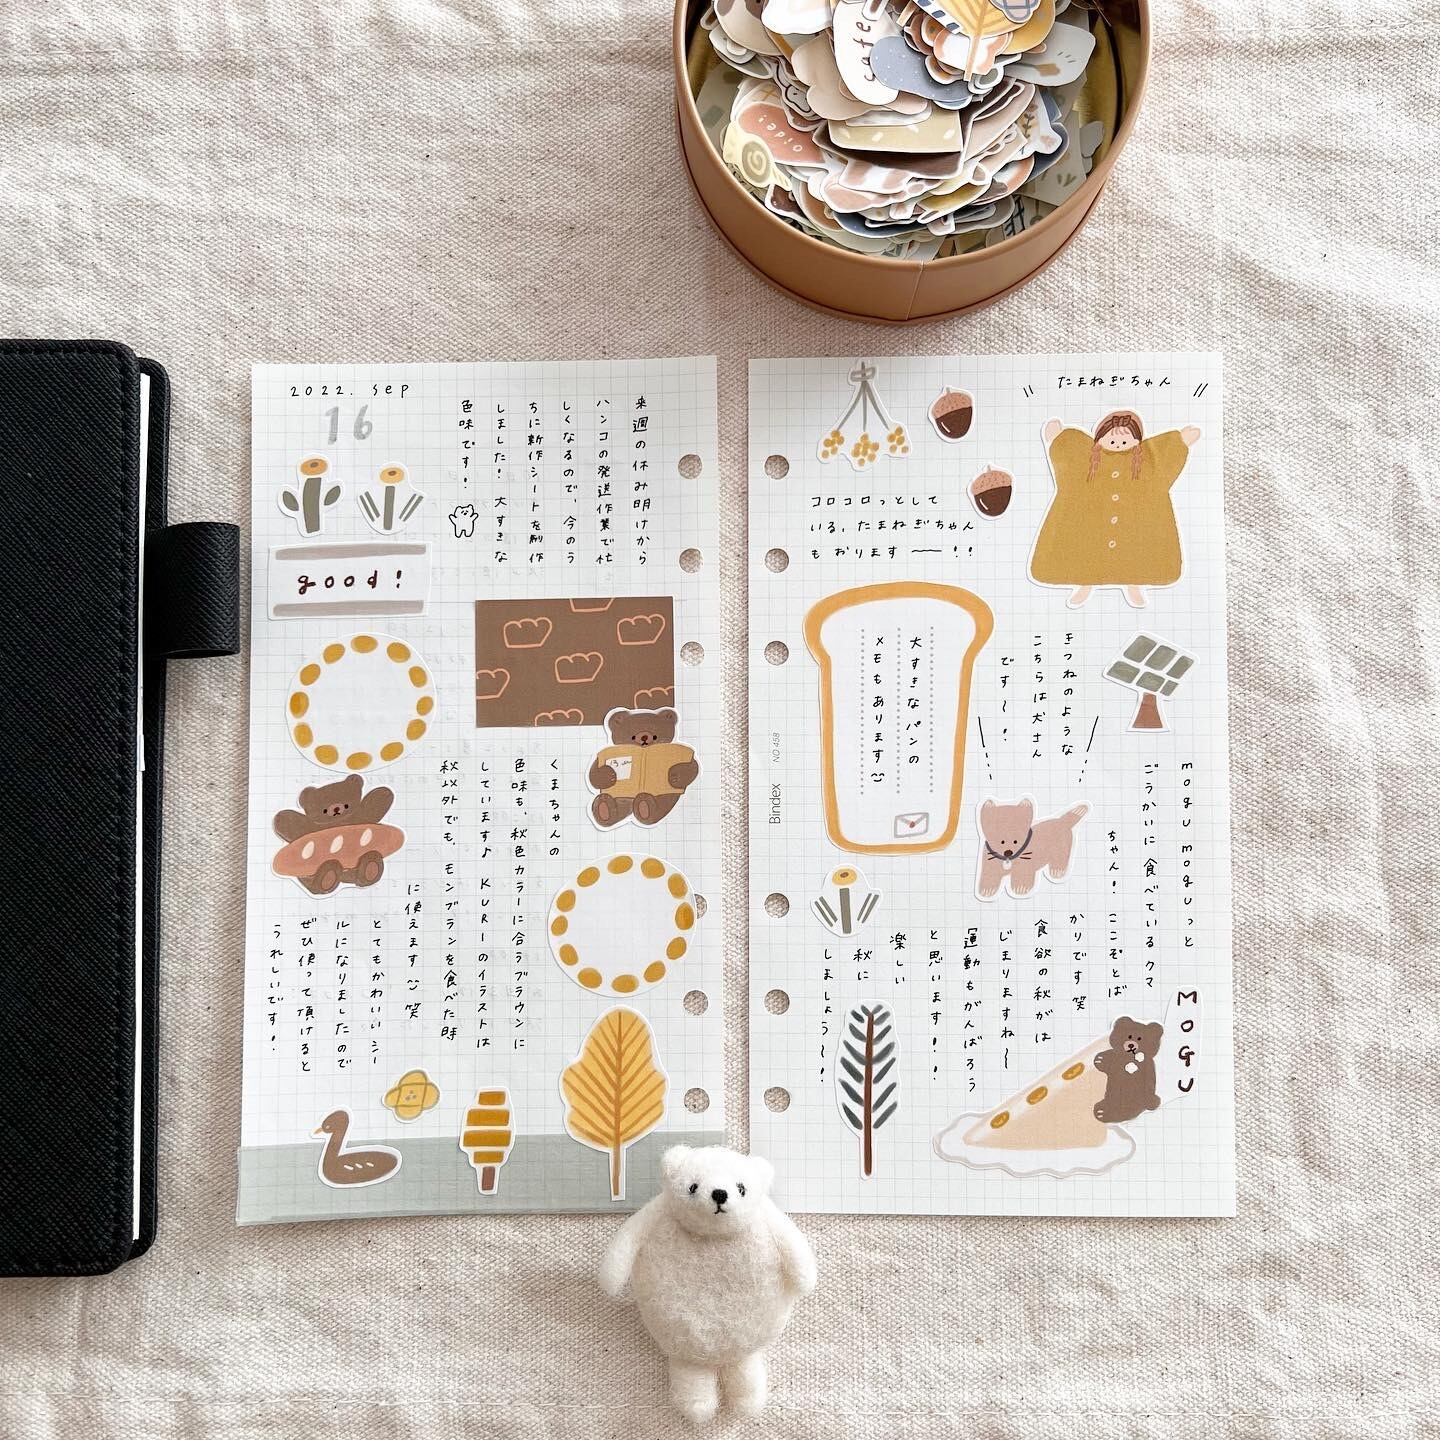 cafe
oide!
2022. sep
16
来週の休み明けから
ハンコの発送作業で忙
しくなるので、今のう
ちに新作シートを制作
しました! 大すきな
色味です!
good!
くまちゃんの
色味も、秋色カラーに合うブラウンに
しています♪ KURIーのイラストは
秋以外でも、モンブランを食べた時
に使えます 笑
とてもかわいいシー
ルになりましたので
ぜひ使って頂けると
うれしいです!
たまねぎちゃん
コロコロっとして
いる、たまねぎちゃん
もおります〜!!
大すきなパンの
メモもあります
きつねのような
こちらは犬さん
です〜!
Bindex NO 458
mogu moguっと
ごうかいに食べているクマ
ちゃん! ここぞとば
かりです 笑
食欲の秋がは
じまりますね〜
運動もがんばろう
と思います!!
楽しい
秋に
しましょう〜!
MOGU